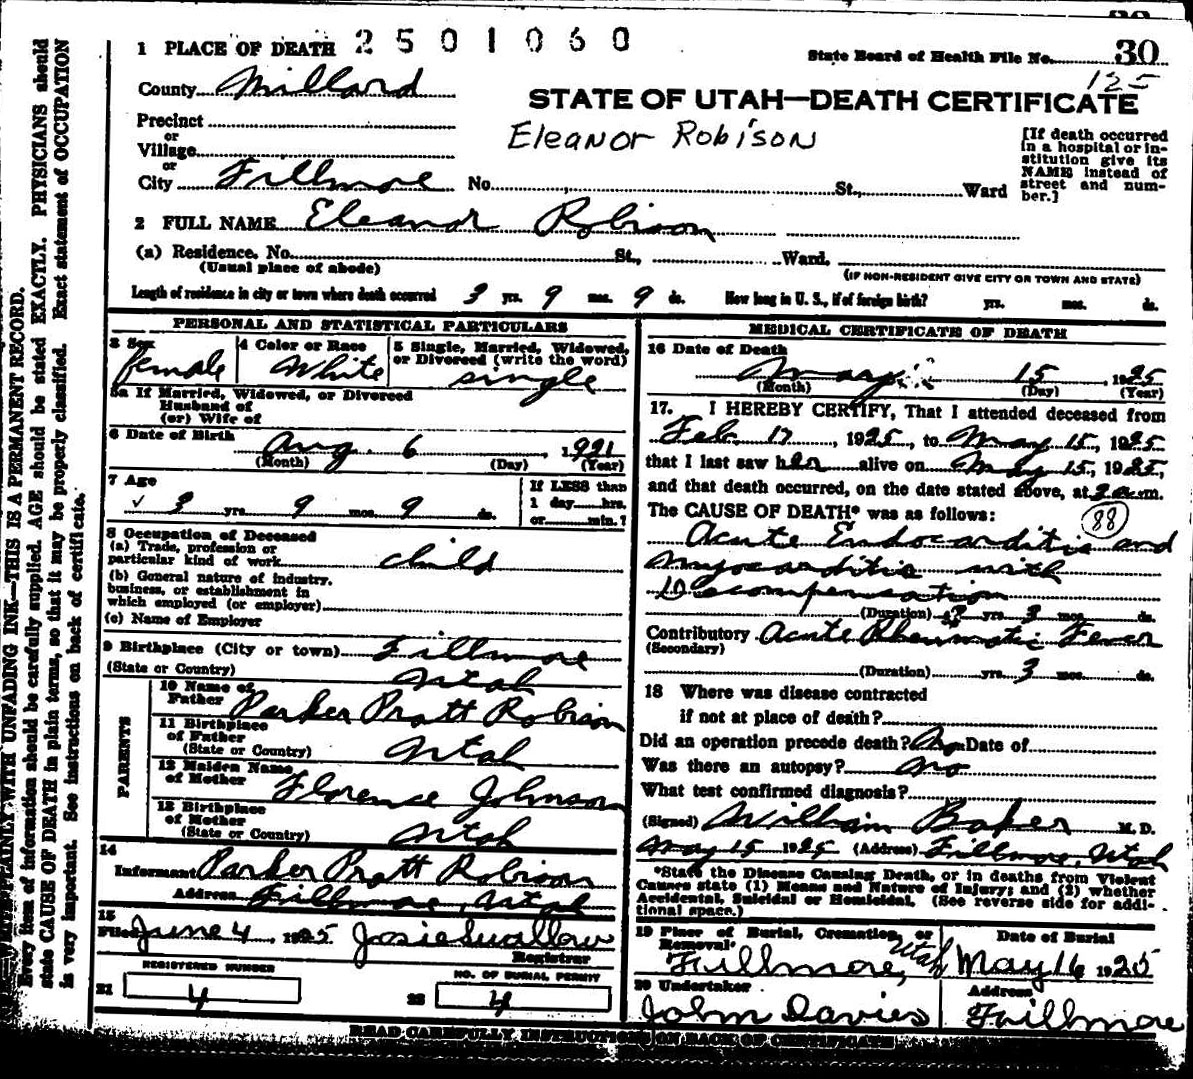 30
125
1 PLACE OF DEATH 2501060
State Board of Health File No.
County Millard
STATE OF UTAH—DEATH CERTIFICATE
Eleanor Robison
Precinct
or
Village
or
City Fillmore No. St., Ward
[If death occurred
in a hospital or in-
stitution give its
NAME instead of
street and num-
ber.]
2 FULL NAME Eleanor Robison
(a) Residence. No. St., Ward.
(Usual place of abode)
(IF NON-RESIDENT GIVE CITY OR TOWN AND STATE)
Length of residence in city or town where death occurred 3 yrs. 9 mos. 9 ds. How long in U. S., if of foreign birth? yrs. mos. ds.
PERSONAL AND STATISTICAL PARTICULARS
3 Sex
female
4 Color or Race
White
5 Single, Married, Widowed,
or Divorced (write the word)
single
5a If Married, Widowed, or Divorced
Husband of
(or) Wife of
6 Date of Birth
Aug. 6, 1921
(Month) (Day) (Year)
7 Age
3 yrs. 9 mos. 9 ds.
If LESS than
1 day hrs.
or min.?
8 Occupation of Deceased
(a) Trade, profession or
particular kind of work child
(b) General nature of industry,
business, or establishment in
which employed (or employer)
(c) Name of Employer
9 Birthplace (City or town) Fillmore
(State or Country) Utah
PARENTS
10 Name of
Father Parker Pratt Robison
11 Birthplace
of Father
(State or Country) Utah
12 Maiden Name
of Mother Florence Johnson
13 Birthplace
of Mother
(State or Country) Utah
14
Informant Parker Pratt Robison
Address Fillmore, Utah
15
Filed June 4, 1925 Josie Swallow
Registrar
REGISTERED NUMBER
21 4
NO. OF BURIAL PERMIT
22 4
MEDICAL CERTIFICATE OF DEATH
16 Date of Death
May 15, 1925
(Month) (Day) (Year)
17. I HEREBY CERTIFY, That I attended deceased from
Feb 17, 1925, to May 15, 1925
that I last saw her alive on May 15, 1925,
and that death occurred, on the date stated above, at 2 a.m.
The CAUSE OF DEATH* was as follows: 88
Acute Endocarditis and
Myocarditis with
Decompensation
(Duration) yrs. 3 mos. ds.
Contributory Acute Rheumatic Fever
(Secondary)
(Duration) yrs. 3 mos. ds.
18 Where was disease contracted
if not at place of death?
Did an operation precede death? No Date of
Was there an autopsy? no
What test confirmed diagnosis?
(Signed) William Baker M. D.
May 15 1925 (Address) Fillmore, Utah
*State the Disease Causing Death, or in deaths from Violent
Causes state (1) Means and Nature of Injury; and (2) whether
Accidental, Suicidal or Homicidal. (See reverse side for addi-
tional space.)
19 Place of Burial, Cremation, or
Removal
Fillmore, Utah
Date of Burial
May 16 1925
20 Undertaker
John Davies
Address
Fillmore
READ CAREFULLY INSTRUCTIONS ON BACK OF CERTIFICATE
WRITE PLAINLY WITH UNFADING INK—THIS IS A PERMANENT RECORD.
Every item of information should be carefully supplied. AGE should be stated EXACTLY. PHYSICIANS should
state CAUSE OF DEATH in plain terms, so that it may be properly classified. Exact statement of OCCUPATION
is very important. See instructions on back of certificate.